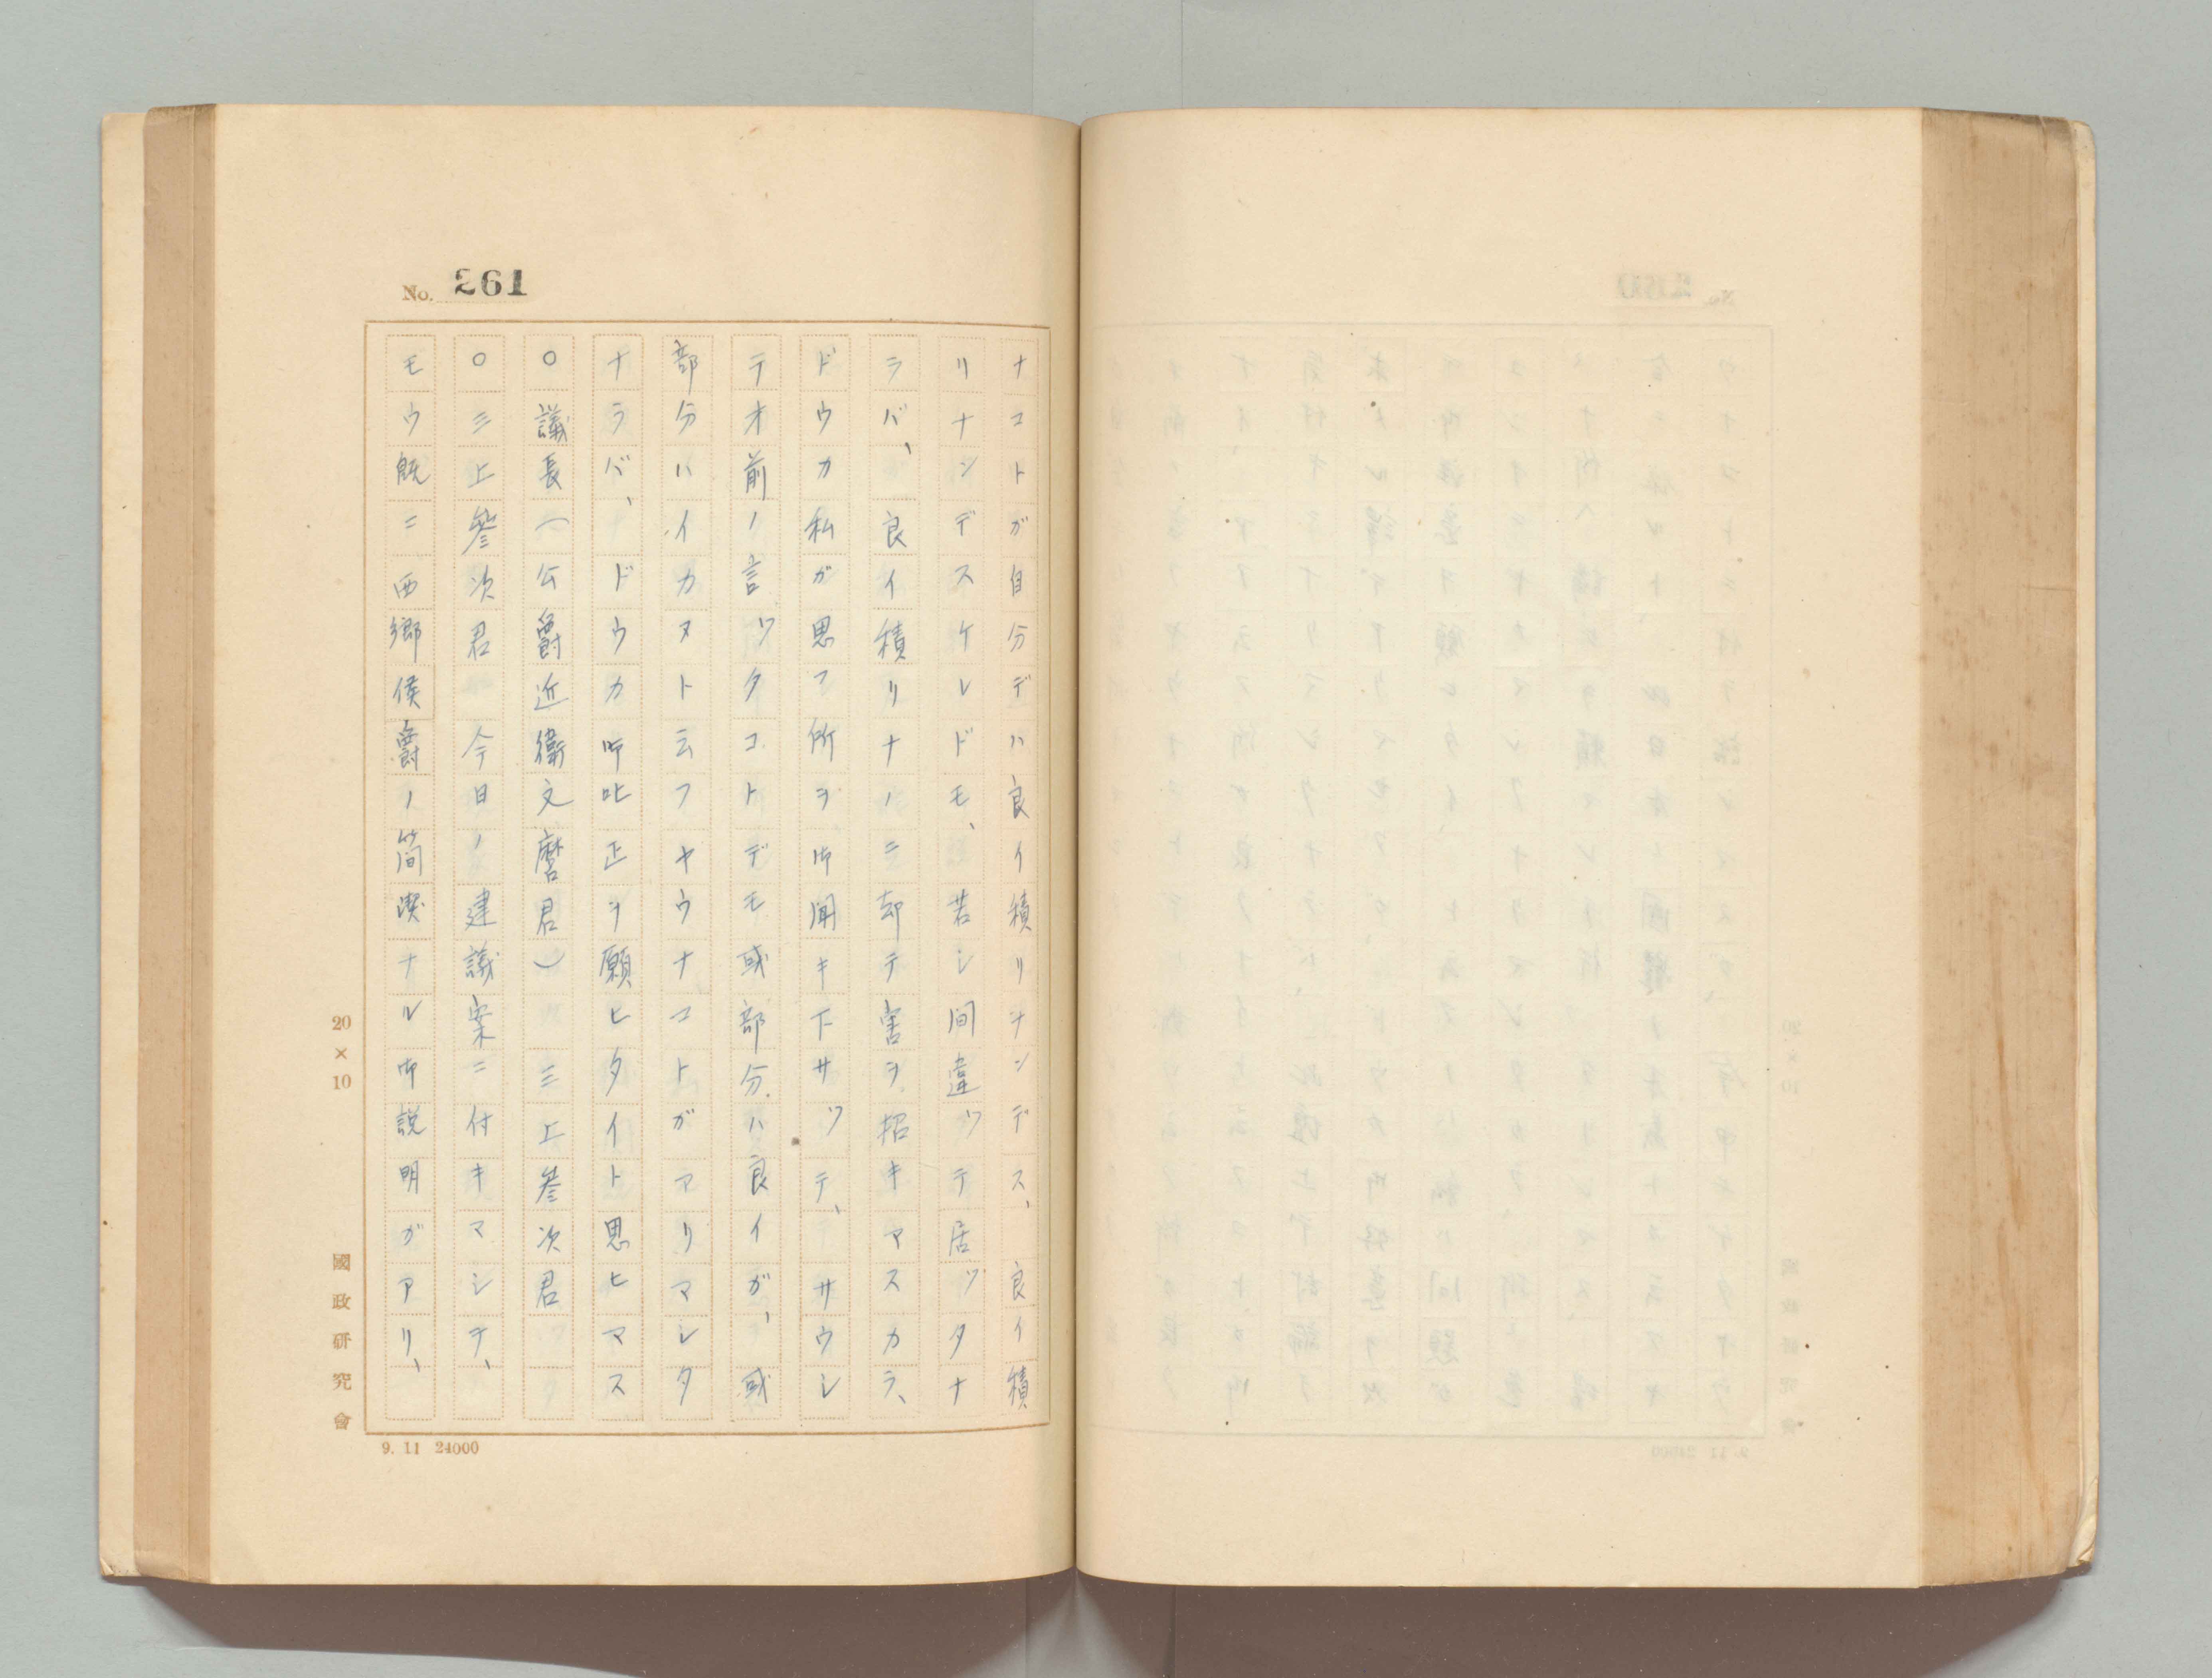 No. 261
ナコトガ自分デハ良イ積リナンデス、良イ積
リナンデスケレドモ、若シ間違ツテ居ツタナ
ラバ、良イ積リナノニ却テ害ヲ招キマスカラ、
ドウカ私ガ思フ所ヲ御聞キ下サツテ、サウシ
テオ前ノ言ツタコトデモ或部分ハ良イガ、或
部分ハイカヌト云フヤウナコトガアリマシタ
ナラバ、ドウカ御叱正ヲ願ヒタイト思ヒマス
○議長(公爵近衛文麿君) 三上參次君
○三上參次君 今日ノ建議案ニ付キマシテ、
モウ既ニ西郷侯爵ノ簡潔ナル御説明ガアリ、
20×10
國政研究會
9. 11 24000